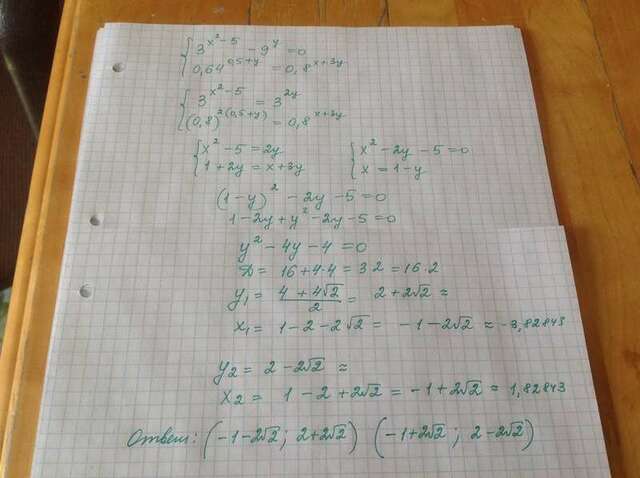 { 3^(x²-5) - 9^y = 0
0,64^(0,5+y) = 0,8^(x+3y)
{ 3^(x²-5) = 3^(2y)
(0,8)^(2(0,5+y)) = 0,8^(x+3y)
{ x² - 5 = 2y { x² - 2y - 5 = 0
1 + 2y = x + 3y x = 1 - y
(1 - y)² - 2y - 5 = 0
1 - 2y + y² - 2y - 5 = 0
y² - 4y - 4 = 0
D = 16 + 4·4 = 32 = 16·2
y₁ = (4 + 4√2)/2 = 2 + 2√2 ≈
x₁ = 1 - 2 - 2√2 = -1 - 2√2 ≈ -3,82843
y₂ = 2 - 2√2 ≈
x₂ = 1 - 2 + 2√2 = -1 + 2√2 ≈ 1,82843
Ответ: (-1-2√2; 2+2√2) (-1+2√2; 2-2√2)